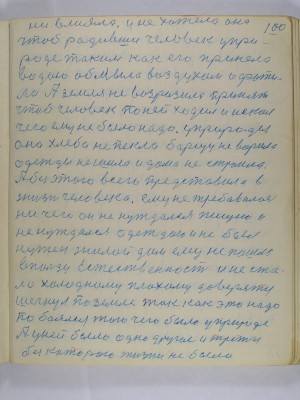 ни влияла, и не хотела она 100
чтоб родивши человек у при-
роде таким как его приняла
водою обмыла воздухом
ла А земля не возразила приняла
чтоб человек по ней ходил и искал
чего ему не было надо. у природы
она хлеба не пекла борщу не варила
одежды не шила и дома не строила.
Абы этого всего представила в
жизнь человека. ему не требовалося
ни чего он не нуждался пищею и
не нуждался одеждою и не был
нужен жилой дом ему не
в жизни Естественность и не ста-
ло холодному плохому доверяти
шагнул по земле так как это надо
побоялся того чего было у природе
А у ней было одно другое и третье
без которого жизни не было